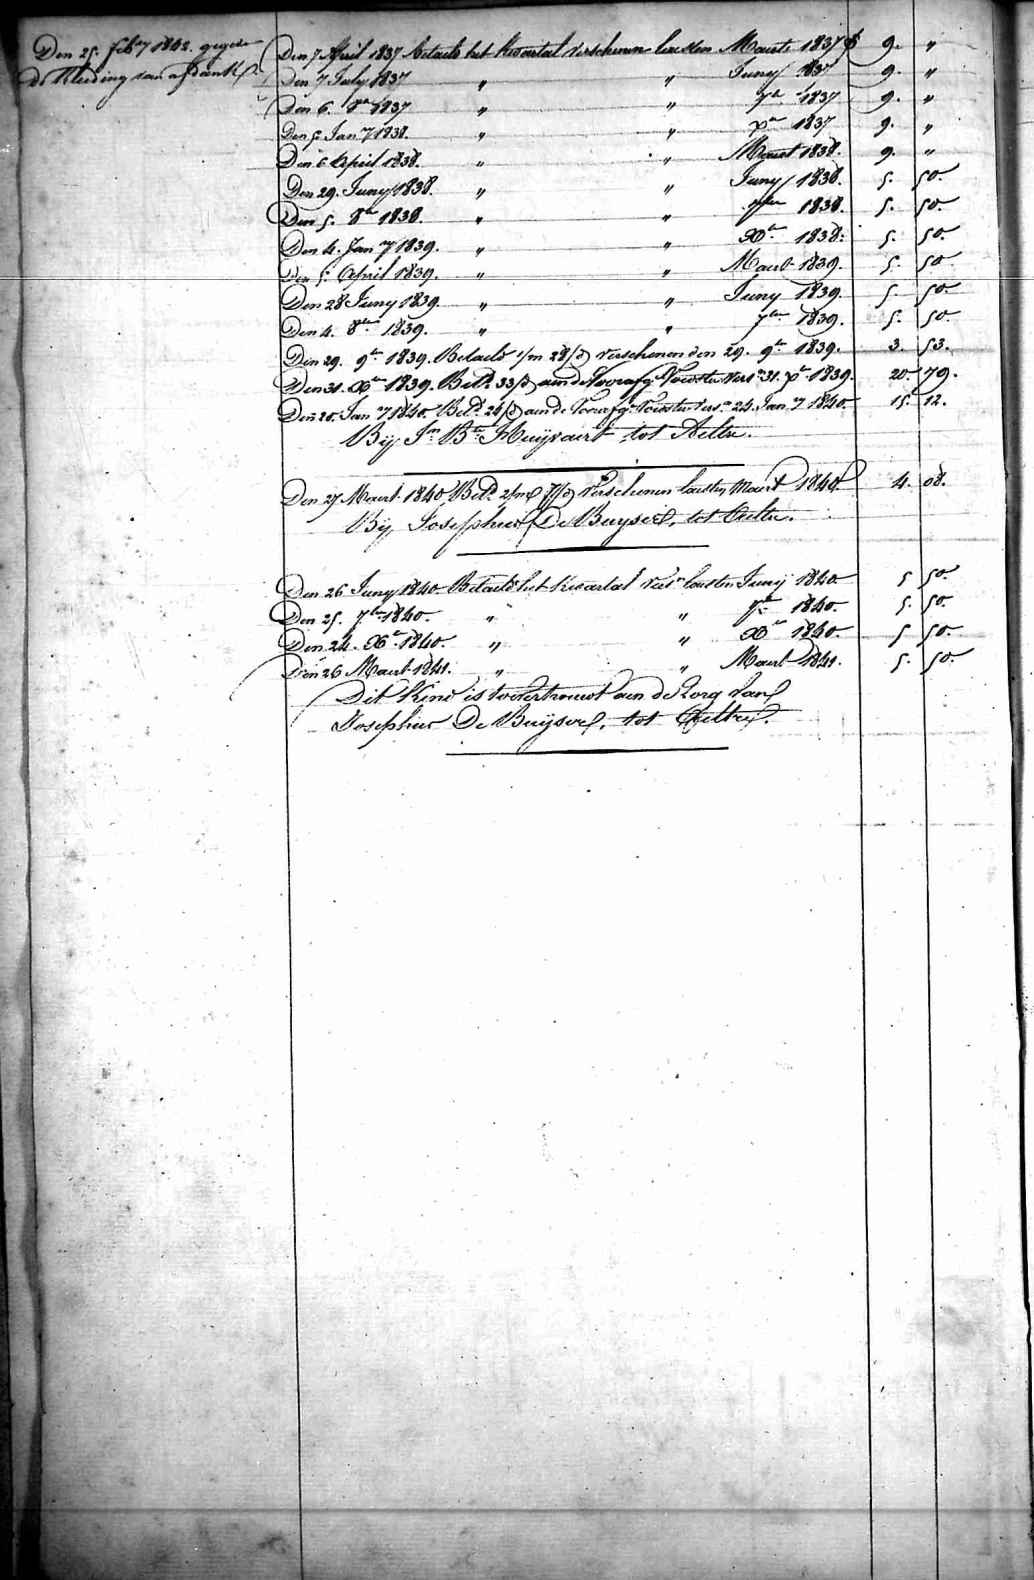 Den 25. feb.y 1842. gegeven
de kleeding van afdank.
Den 7 April 1837 betaeld het kwartal verschenen lausten Maert 1837 9. "
Den 7 July 1837 " " Juny 1837 9. "
Den 6. 8re 1837 " " 7re 1837 9. "
Den 5 Jany 1838. " " xre 1837 9. "
Den 6 April 1838. " " Maert 1838. 9. "
Den 29. Juny 1838. " " Juny 1838. 5. 50.
Den 5. 8re 1838. " " 7bre 1838. 5. 50.
Den 4. Jany 1839. " " Xbre 1838. 5. 50.
Den 5. April 1839. " " Maert 1839. 5. 50.
Den 28 Juny 1839. " " Juny 1839. 5. 50.
Den 4. 8bre 1839. " " 7bre 1839. 5. 50.
Den 29. 9re 1839. Betaeld 1/m 28/d verschenen den 29. 9re 1839. 3. 53.
Den 31. Xre 1839. Betd. 33/d aen de voorafg. Voedster vers.n 31. Xre 1839. 20. 79.
Den 20. Jany 1840. Betd. 24/d aen de voorafg. Voedster vers.n 24. Jany 1840. 15. 12.
Bij Jn. Bte. Huijsaert tot Aeltre.
Den 27 Maert 1840 Betd. 2/m 7/d verschenen lausten Maert 1840 4. 08.
Bij Josephus De Buysere, tot Aeltre.
Den 26 Juny 1840 Betaeld het kwartal vers.n lausten Juny 1840 5 50.
Den 25. 7bre 1840. " " 7re 1840. 5. 50.
Den 24. Xbre 1840. " " Xbre 1840. 5 50.
Den 26 Maert 1841. " " Maert 1841. 5. 50.
Dit Kind is toevertrouwt aen de Zorg van
Josephus De Buijsere, tot Aeltre.